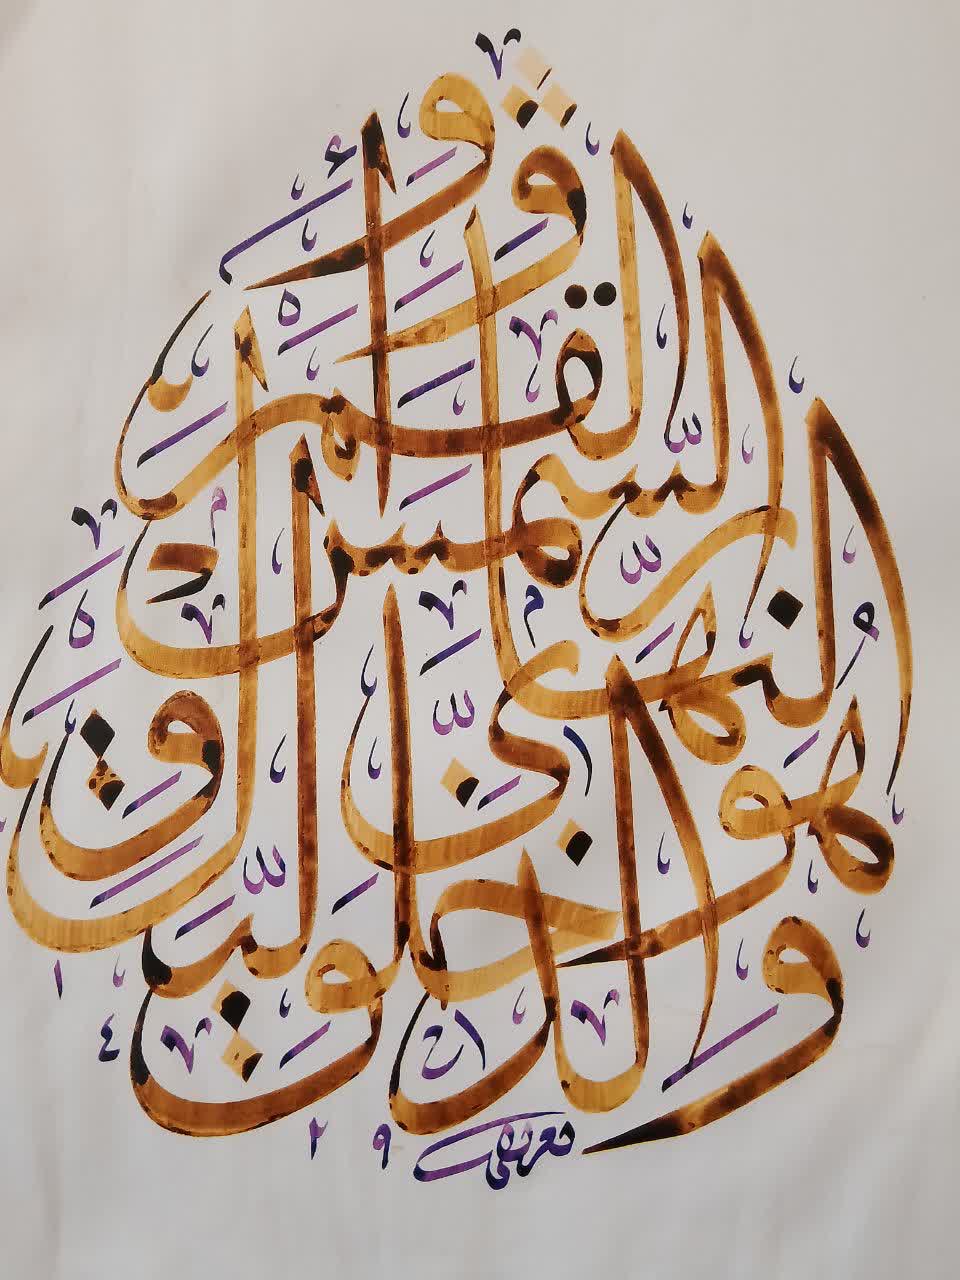 وَهُوَ الَّذِي خَلَقَ اللَّيْلَ وَالنَّهَارَ وَالشَّمْسَ وَالْقَمَرَ
١٤٢٩